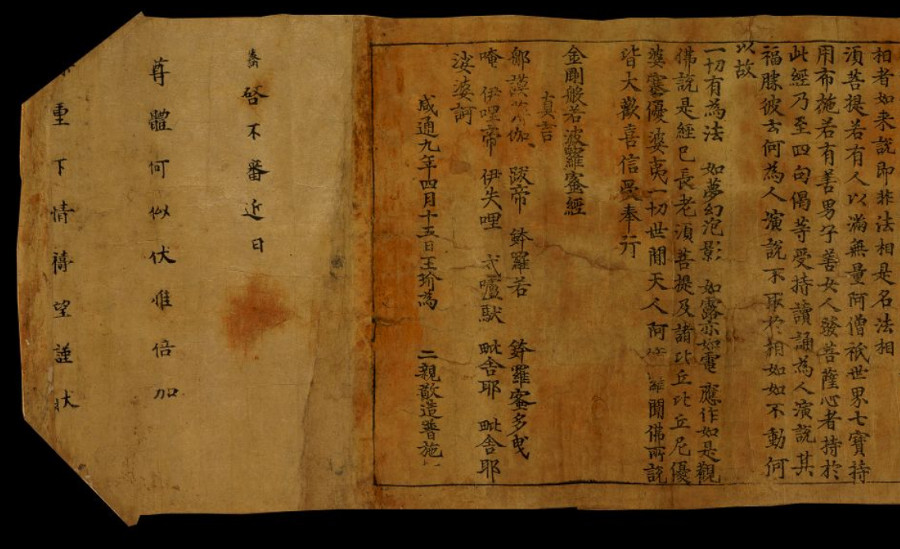 相者如来說即非法相是名法相
湏菩提若有人以滿無量阿僧祇世界七寶持
用布施若有善男子善女人發菩薩心者持於
此經乃至四句偈等受持讀誦為人演說其
福勝彼云何為人演說不取於相如如不動何
以故
一切有為法 如夢幻泡影 如露亦如電 應作如是觀
佛說是經已長老湏菩提及諸比丘比丘尼優
婆塞優婆夷一切世間天人阿 羅聞佛所說
皆大歡喜信受奉行
金剛般若波羅蜜經
真言
那謨 伽 䟦帝 鉢羅若 鉢羅蜜多曳
唵 伊哩帝 伊失哩 戍嚧馱 毗舍耶 毗舍耶
娑婆訶
咸通九年四月十五日王玠為 二親敬造普施
啓不審近日
尊體何似伏惟倍加
重下情禱望謹狀